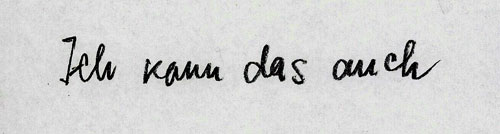 Ich kann das auch